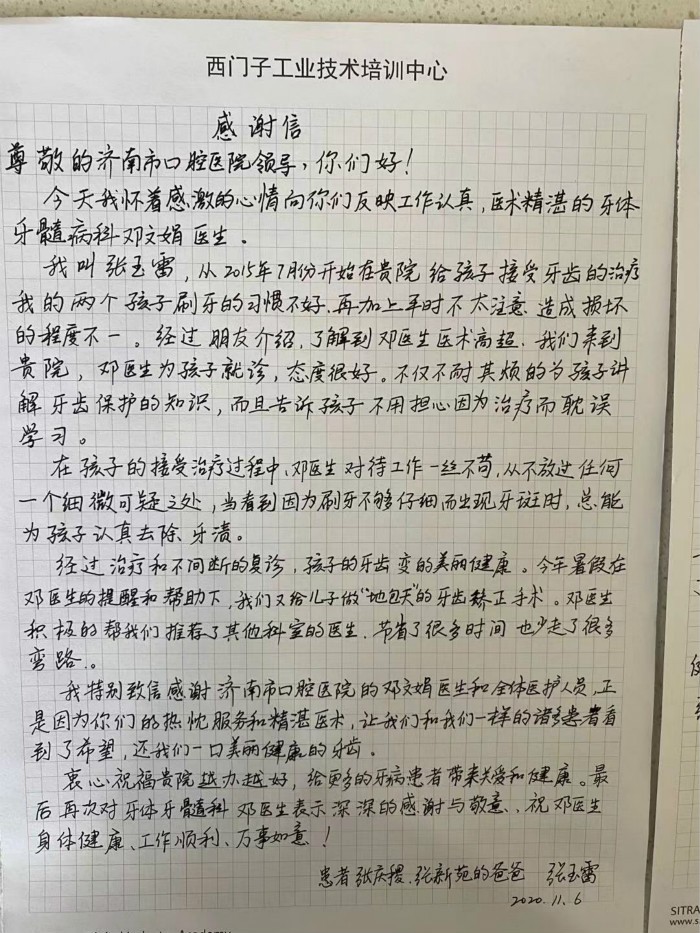 西门子工业技术培训中心
感谢信
尊敬的济南市口腔医院领导,你们好!
今天我怀着感激的心情向你们反映工作认真,医术精湛的牙体
牙髓病科邓文娟医生。
我叫张玉雷,从2015年7月份开始在贵院给孩子接受牙齿的治疗
我的两个孩子刷牙的习惯不好.再加上平时不太注意.造成损坏
的程度不一。经过朋友介绍,了解到邓医生医术高超.我们来到
贵院,邓医生为孩子就诊,态度很好。不仅不耐其烦的为孩子讲
解牙齿保护的知识,而且告诉孩子不用担心因为治疗而耽误
学习。
在孩子的接受治疗过程中、邓医生对待工作一丝不苟,从不放过任何
一个细微可疑之处,当看到因为刷牙不够仔细而出现牙斑时,总能
为孩子认真去除牙渍。
经过治疗和不间断的复诊,孩子的牙齿变的美丽健康。今年暑假在
邓医生的提醒和帮助下,我们又给儿子做"地包天"的牙齿矫正手术。邓医生
积极的帮我们推荐了其他科室的医生.节省了很多时间也少走了很多
弯路.。
我特别致信感谢济南市口腔医院的邓文娟医生和全体医护人员,正
是因为你们的热忱服务和精湛医术,让我们和我们一样的诸多患者看
到了希望,还我们一口美丽健康的牙齿。
衷心祝福贵院越办越好,给更多的牙病患者带来关爱和健康。最
后再次对牙体牙髓科邓医生表示深深的感谢与敬意.祝邓医生
身体健康、工作顺利、万事如意!
患者张庆稷.张新苑的爸爸 张玉雷
2020.11.6
SITRA
www.s